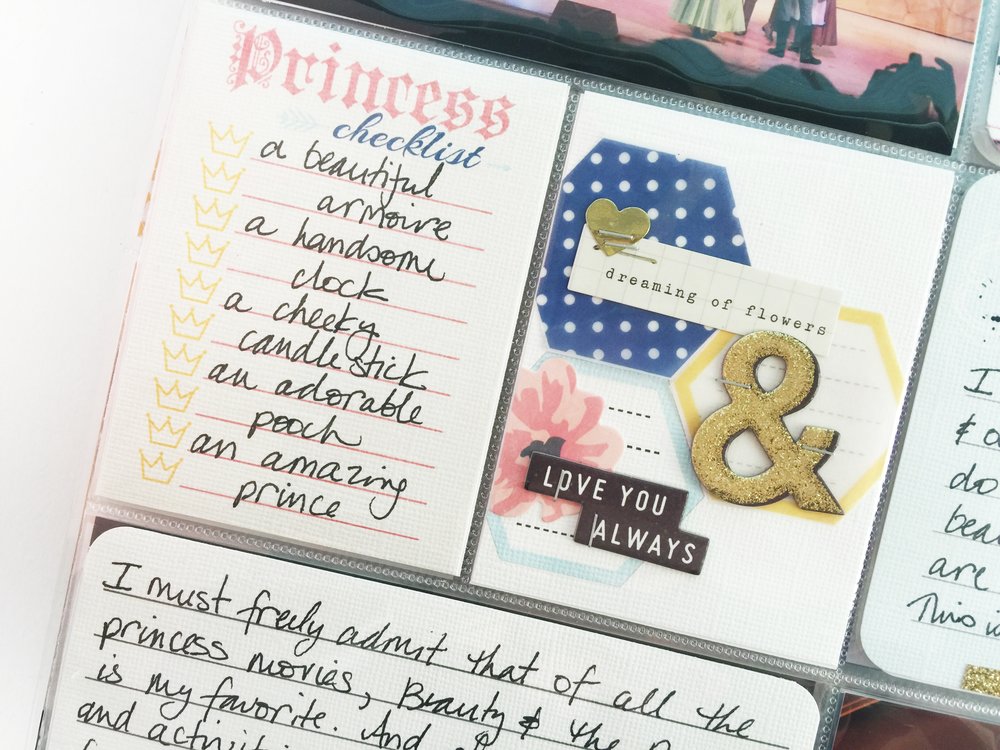 Princess
checklist
a beautiful
armoire
a handsome
clock
a cheeky
candlestick
an adorable
pooch
an amazing
prince
dreaming of flowers
&
LOVE YOU
ALWAYS
I must freely admit that of all the
princess movies, Beauty & the
is my favorite. And
and
I
&
do
are
This